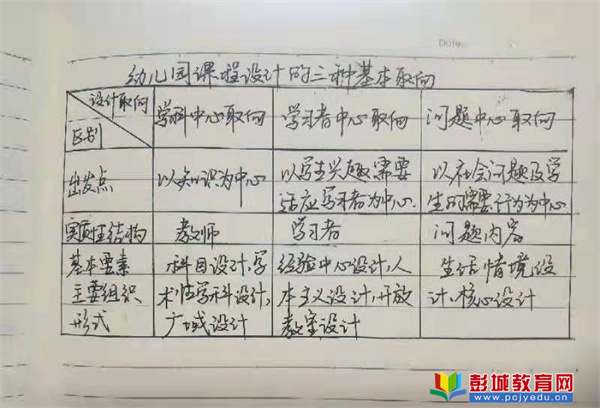 Date
幼儿园课程设计的三种基本取向
设计取向
区别
学科中心取向
学习者中心取向
问题中心取向
出发点
以知识为中心
以学生兴趣、需要
适应学习者为中心.
以社会问题及学
生的需要行为为中心
实质性结构
教师
学习者
问题内容
基本要素
主要组织
形式
科目设计,学
术性学科设计,
广域设计
经验中心设计,人
本主义设计,开放
教室设计
生活情境设
计、核心设计
彭城教育网
www.pcjyedu.cn